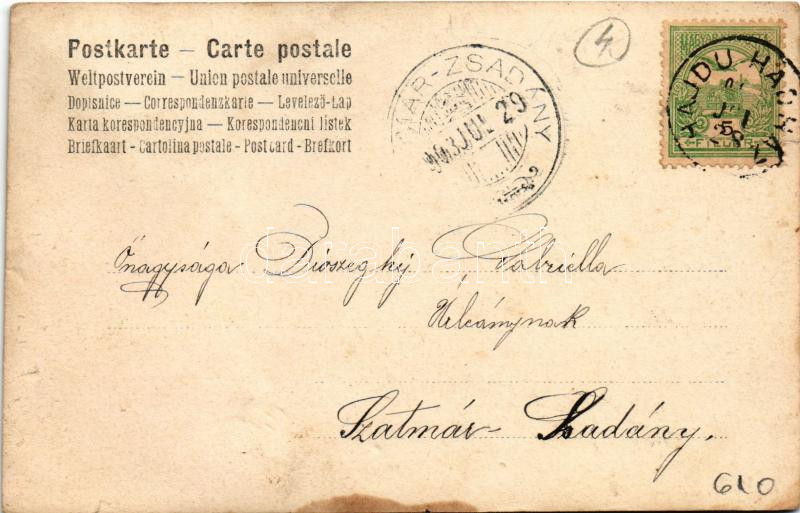 Postkarte – Carte postale
Weltpostverein – Union postale universelle
Dopisnice – Correspondenzkarte – Levelező-Lap
Karta korespondencyjna – Korespondencni listek
Briefkaart - Cartolina postale - Post card - Brefkort
4.
MÁR-ZSADÁNY
JUL 29
HAJDU HADHÁZ
MAGYAR KIR. POSTA
5
FILLÉR
Őnagysága Diószeghy Gabriella
Urleánynak
Szatmár Zsadány.
610
darabanth